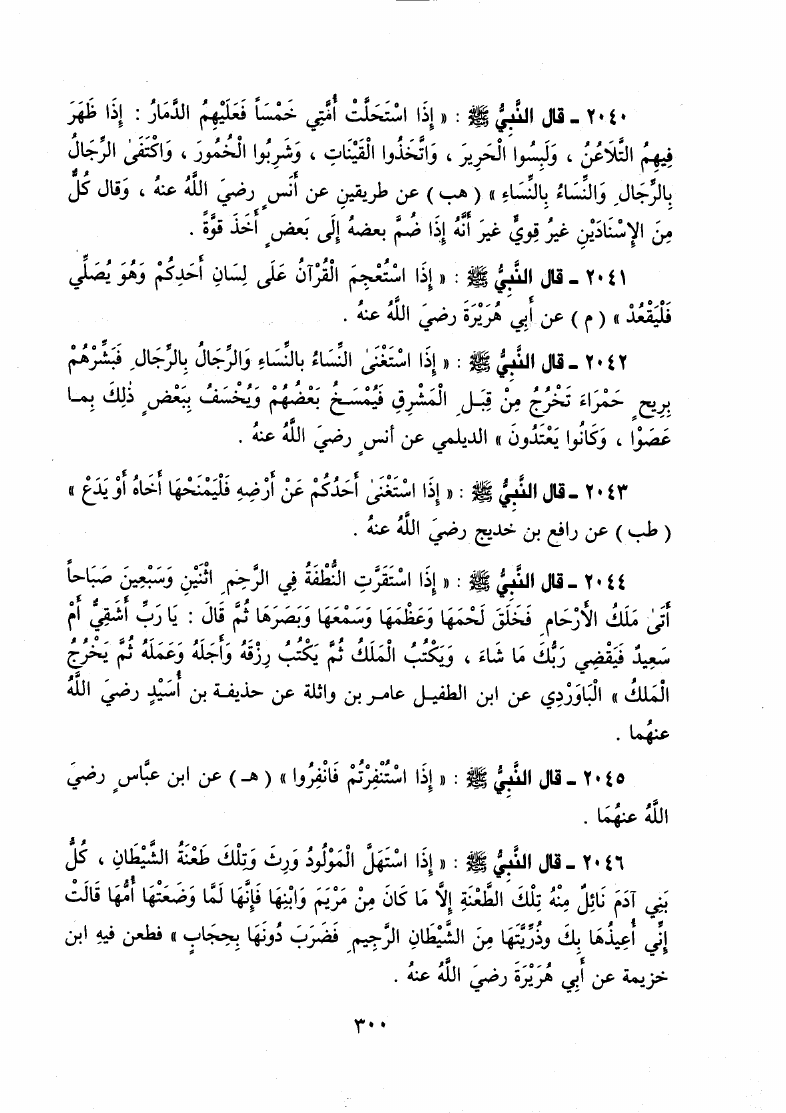 ٢٠٤٠ ـ قال النَّبِيُّ ﷺ : « إِذَا اسْتَحَلَّتْ أُمَّتِي خَمْسَاً فَعَلَيْهِمُ الدَّمَارُ : إِذَا ظَهَرَ
فِيهِمُ التَّلَاعُنُ ، وَلَبِسُوا الْحَرِيرَ ، وَاتَّخَذُوا الْقَيْنَاتِ ، وَشَرِبُوا الْخُمُورَ ، وَاكْتَفَىٰ الرِّجَالُ
بِالرِّجَالِ وَالنِّسَاءُ بِالنِّسَاءِ » ( هب ) عن طريقينِ عن أَنَسٍ رضيَ اللَّهُ عنهُ ، وَقال كُلٌّ
مِنَ الإِسْنَادَيْنِ غيرُ قويٍّ غيرَ أَنَّهُ إِذَا ضُمَّ بعضهُ إِلَى بَعضٍ أَخَذَ قوَّةً .
٢٠٤١ ـ قال النَّبِيُّ ﷺ : « إِذَا اسْتُعْجِمَ الْقُرْآنُ عَلَى لِسَانِ أَحَدِكُمْ وَهُوَ يُصَلِّي
فَلْيَقْعُدْ » ( م ) عن أَبِي هُرَيْرَةَ رضيَ اللَّهُ عنهُ .
٢٠٤٢ ـ قال النَّبِيُّ ﷺ : « إِذَا اسْتَغْنَىٰ النِّسَاءُ بِالنِّسَاءِ وَالرِّجَالُ بِالرِّجَالِ فَبَشِّرْهُمْ
بِرِيحٍ حَمْرَاءَ تَخْرُجُ مِنْ قِبَلِ الْمَشْرِقِ فَيُمْسَخُ بَعْضُهُمْ وَيُخْسَفُ بِبَعْضٍ ذٰلِكَ بِمَا
عَصَوْا ، وَكَانُوا يَعْتَدُونَ » الديلمي عن أَنسٍ رضيَ اللَّهُ عنهُ .
٢٠٤٣ ـ قال النَّبِيُّ ﷺ : « إِذَا اسْتَغْنَىٰ أَحَدُكُمْ عَنْ أَرْضِهِ فَلْيَمْنَحْهَا أَخَاهُ أَوْ يَدَعْ »
( طب ) عن رافع بن خديج رضيَ اللَّهُ عنهُ .
٢٠٤٤ ـ قال النَّبِيُّ ﷺ : « إِذَا اسْتَقَرَّتِ النُّطْفَةُ فِي الرَّحِمِ اثْنَيْنِ وَسَبْعِينَ صَبَاحاً
أَتَىٰ مَلَكُ الأَرْحَامِ فَخَلَقَ لَحْمَهَا وَعَظْمَهَا وَسَمْعَهَا وَبَصَرَهَا ثُمَّ قَالَ : يَا رَبِّ أَشَقِيٌّ أَمْ
سَعِيدٌ فَيَقْضِي رَبُّكَ مَا شَاءَ ، وَيَكْتُبُ الْمَلَكُ ثُمَّ يَكْتُبُ رِزْقَهُ وَأَجَلَهُ وَعَمَلَهُ ثُمَّ يَخْرُجُ
الْمَلَكُ » الْبَاوَرْدِي عن ابن الطفيل عامر بن واثلة عن حذيفة بن أُسَيْدٍ رضيَ اللَّهُ
عنهُما .
٢٠٤٥ ـ قال النَّبِيُّ ﷺ : « إِذَا اسْتُنْفِرْتُمْ فَانْفِرُوا » ( هـ ) عن ابن عبَّاسٍ رضيَ
اللَّهُ عنهُمَا .
٢٠٤٦ ـ قال النَّبِيُّ ﷺ : « إِذَا اسْتَهَلَّ الْمَوْلُودُ وَرِثَ وَتِلْكَ طَعْنَةُ الشَّيْطَانِ ، كُلُّ
بَنِي آدَمَ نَائِلٌ مِنْهُ تِلْكَ الطَّعْنَةِ إِلَّا مَا كَانَ مِنْ مَرْيَمَ وَابْنِهَا فَإِنَّهَا لَمَّا وَضَعَتْهَا أُمُّهَا قَالَتْ
إِنِّي أُعِيذُهَا بِكَ وَذُرِّيَّتَهَا مِنَ الشَّيْطَانِ الرَّجِيمِ فَضَرَبَ دُونَهَا بِحِجَابٍ » فطعن فيهِ ابن
خزيمة عن أَبِي هُرَيْرَةَ رضيَ اللَّهُ عنهُ .
٣٠٠